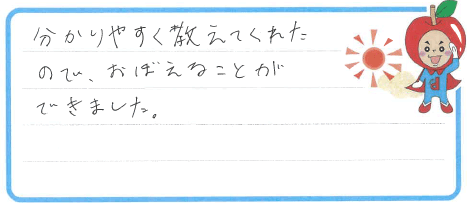 分かりやすく教えてくれた
ので、おぼえることが
できました。